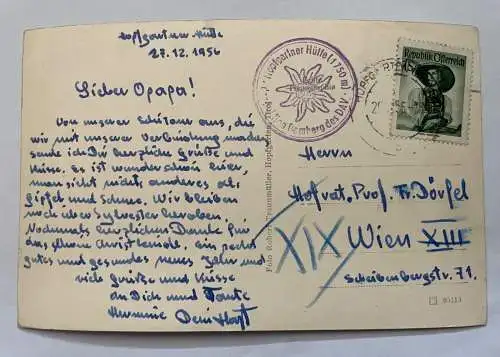 Hopfgartner Hütte
27.12.1956
Lieber Opapa!
Von unserer Skitour aus, die
wir mit unserer Verbindung machen
sende ich Dir herzliche Grüße und
Küsse. Es ist wunderschön hier,
man sieht nichts anderes als
Gipfel und Schnee. Wir bleiben
noch über Sylvester heroben.
Nochmals herzlichen Dank für
das schöne Christkindl, ein
gutes und gesundes neues Jahr und
viele Grüße und Küsse
an Dich und Tante
Hermine Dein Horst
Foto Robert Hopfgarten
Hopfgartner Hütte (1750 m)
Bamberg des DAV
Republik Österreich
HOPFGARTEN
Herrn
Hofrat. Prof. Fr. Dörfel
XIX Wien XIII
Scheibenbergstr. 71.